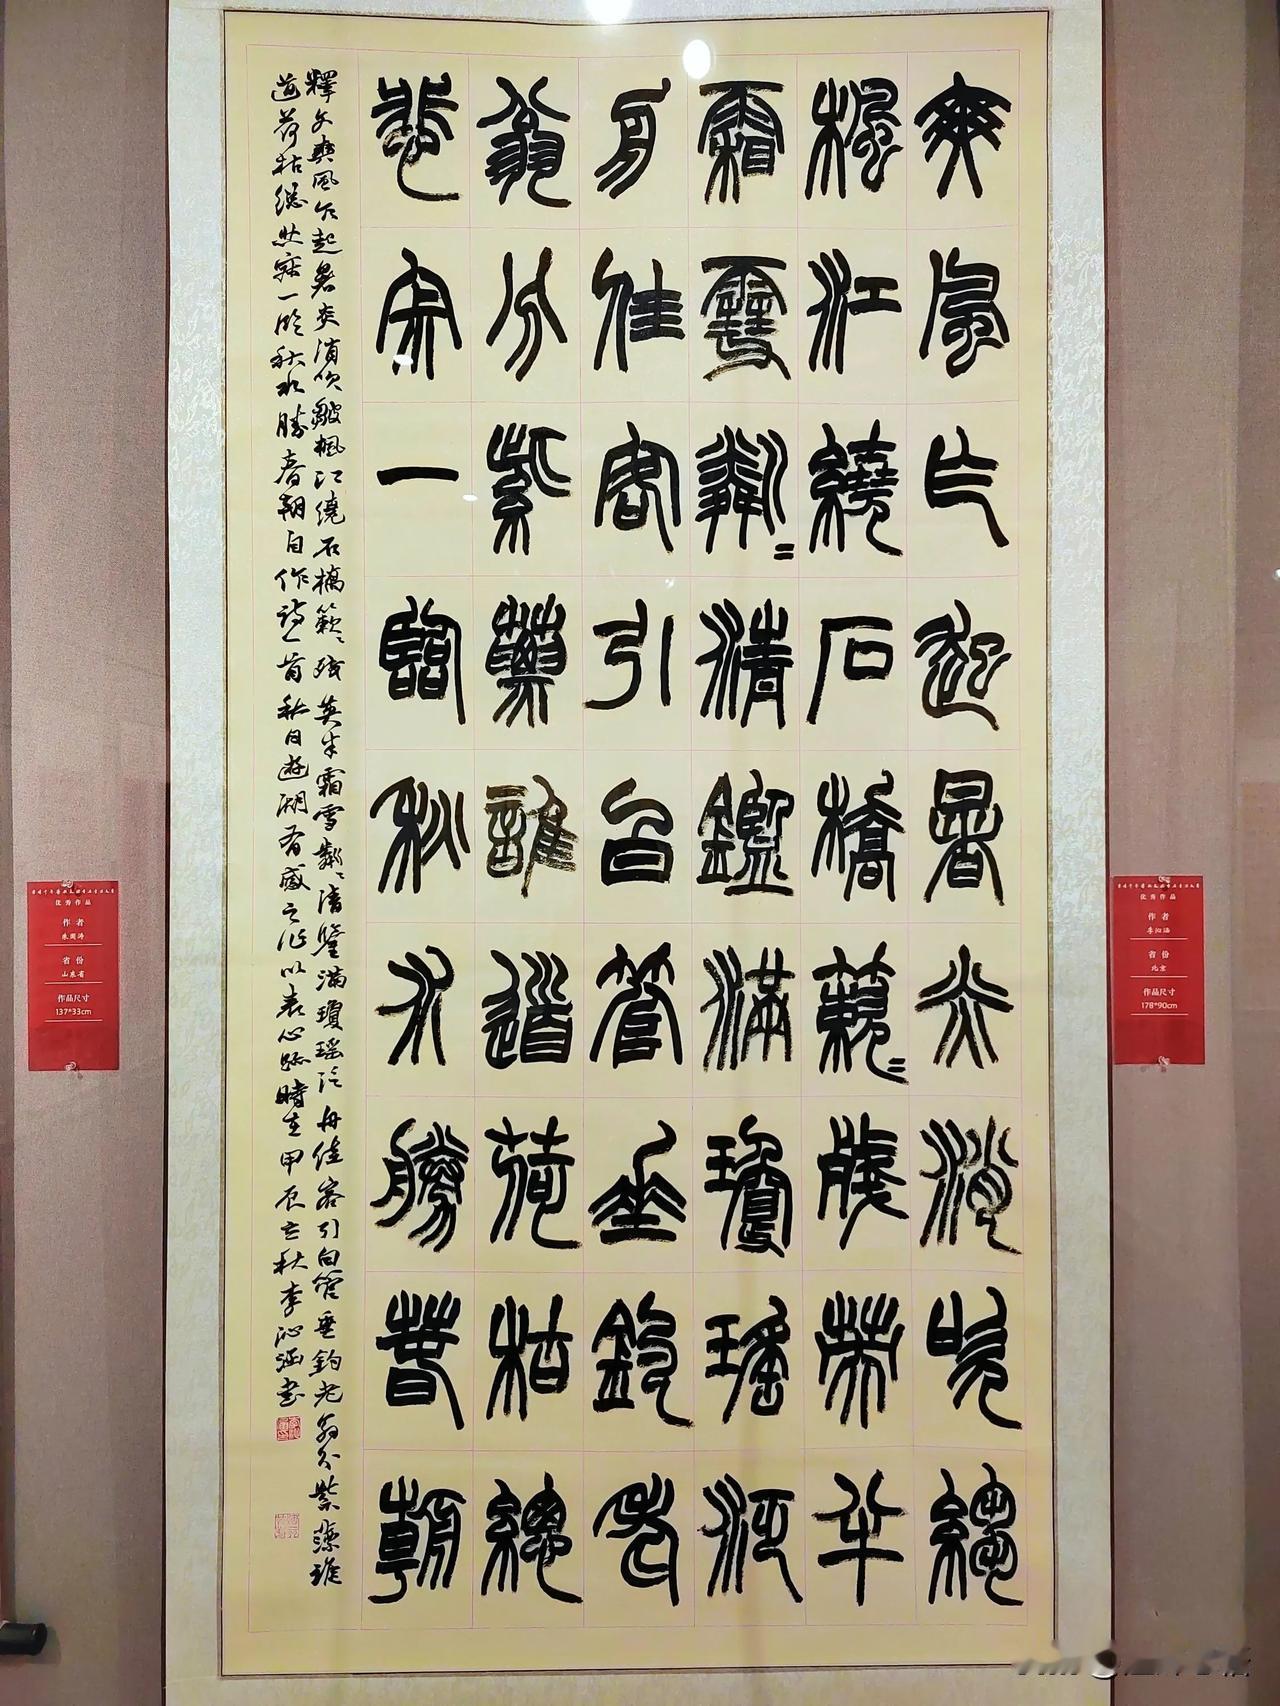 爽風乍起暑炎消吹皺
楓江繞石橋簌〻殘英半
霜雪粼〻清鑒滿瓊瑤泛
舟佳客引白管垂鈎老
翁分紫藻誰道荷枯總
悲寂一臨秋水勝春朝
釋文爽風乍起暑炎消吹皺楓江繞石橋簌〻殘英半霜雪粼〻清鑒滿瓊瑤泛舟佳客引白管垂鈎老翁分紫藻誰
道荷枯總悲寂一臨秋水勝春朝自作詩一首秋日遊湖有感之作以表心跡時在甲辰立秋李沁涵書
优秀作品
作者
李沁涵
省份
北京
作品尺寸
178*90cm
优秀作品
作者
朱国涛
省份
山东省
作品尺寸
137*33cm